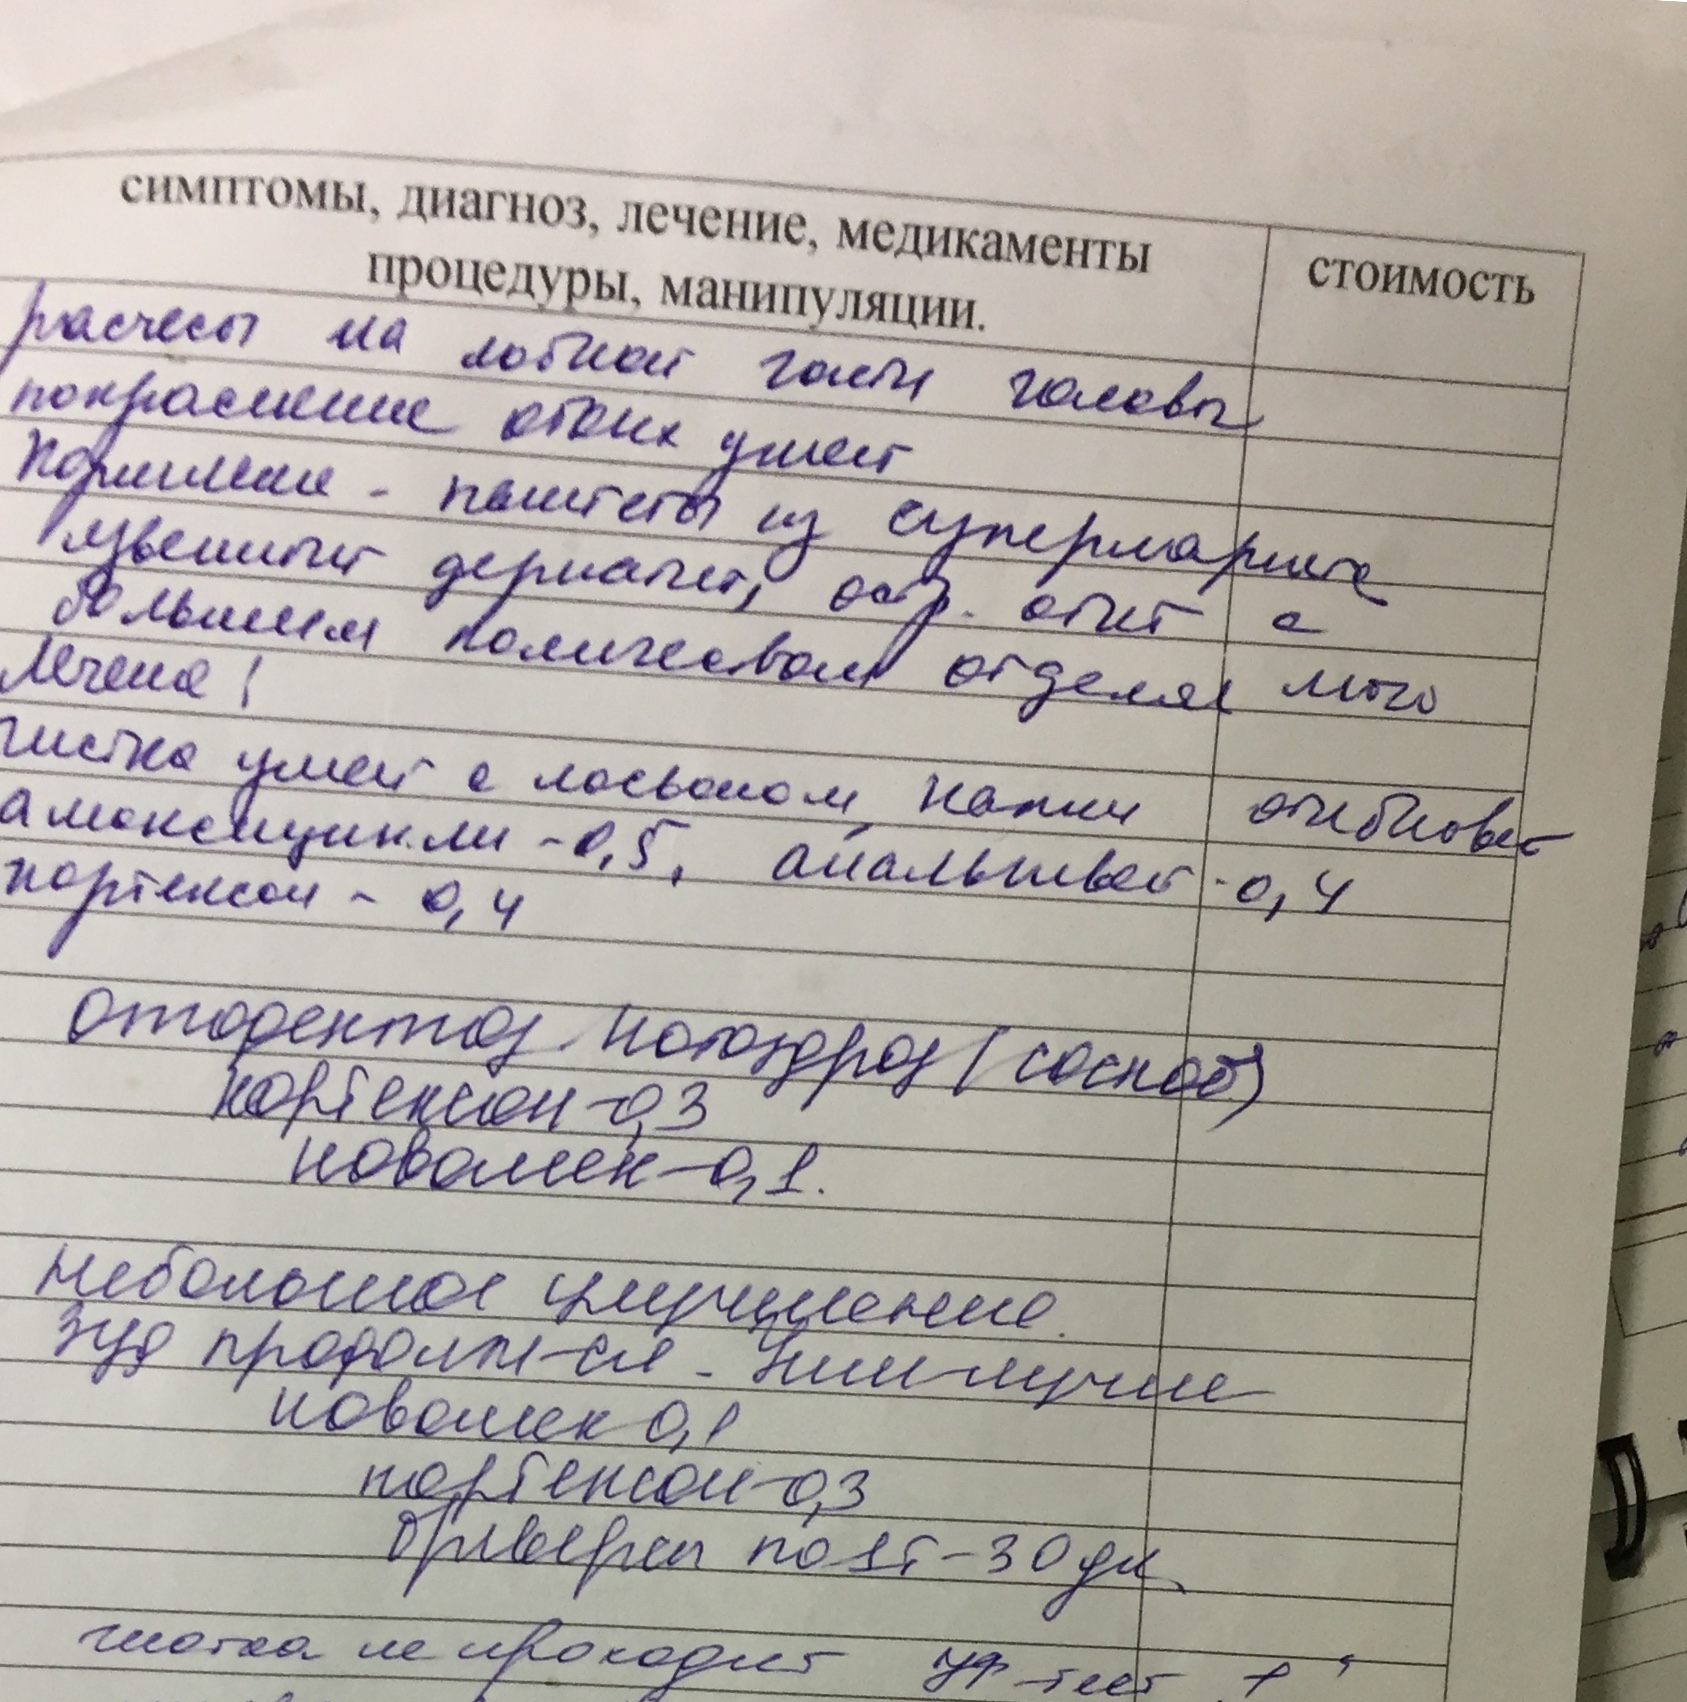 симптомы, диагноз, лечение, медикаменты
процедуры, манипуляции.
стоимость
расчесы на лобной части головы
покраснение обоих ушей
Кормление - паштеты из супермаркета
язвенный дерматит, остр. отит с
большим количеством отделяемого
Лечение!
чистка ушей с лосьоном, капли отибиовет
амоксициклин -0,5, айнальгивет - 0,4
кортексон - 0,4
отодентоз. (соскоб)
кортексон -0,3
новомек -0,1.
Небольшое улучшение.
Зуд продолж-ся. Уши лучше
новомек 0,1
кортексон -0,3
по 1т - 30 дн.
чистка не проходит уф-тест +